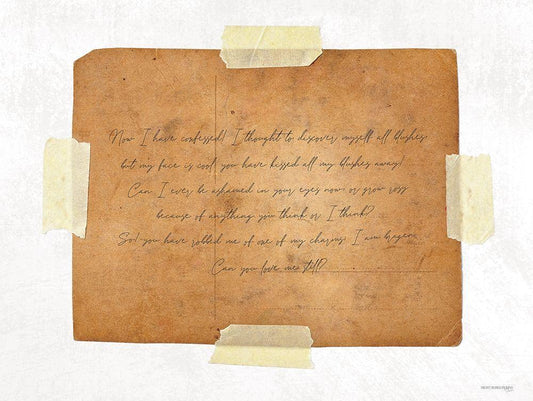 Now I have confessed! I thought to discover myself all blushes,
but my face is cool, you have kissed all my blushes away!
Can I ever be ashamed in your eyes now, or grow rosy
because of anything you think or I think?
So! you have robbed me of one of my charms. I am brazen.
Can you love me still?